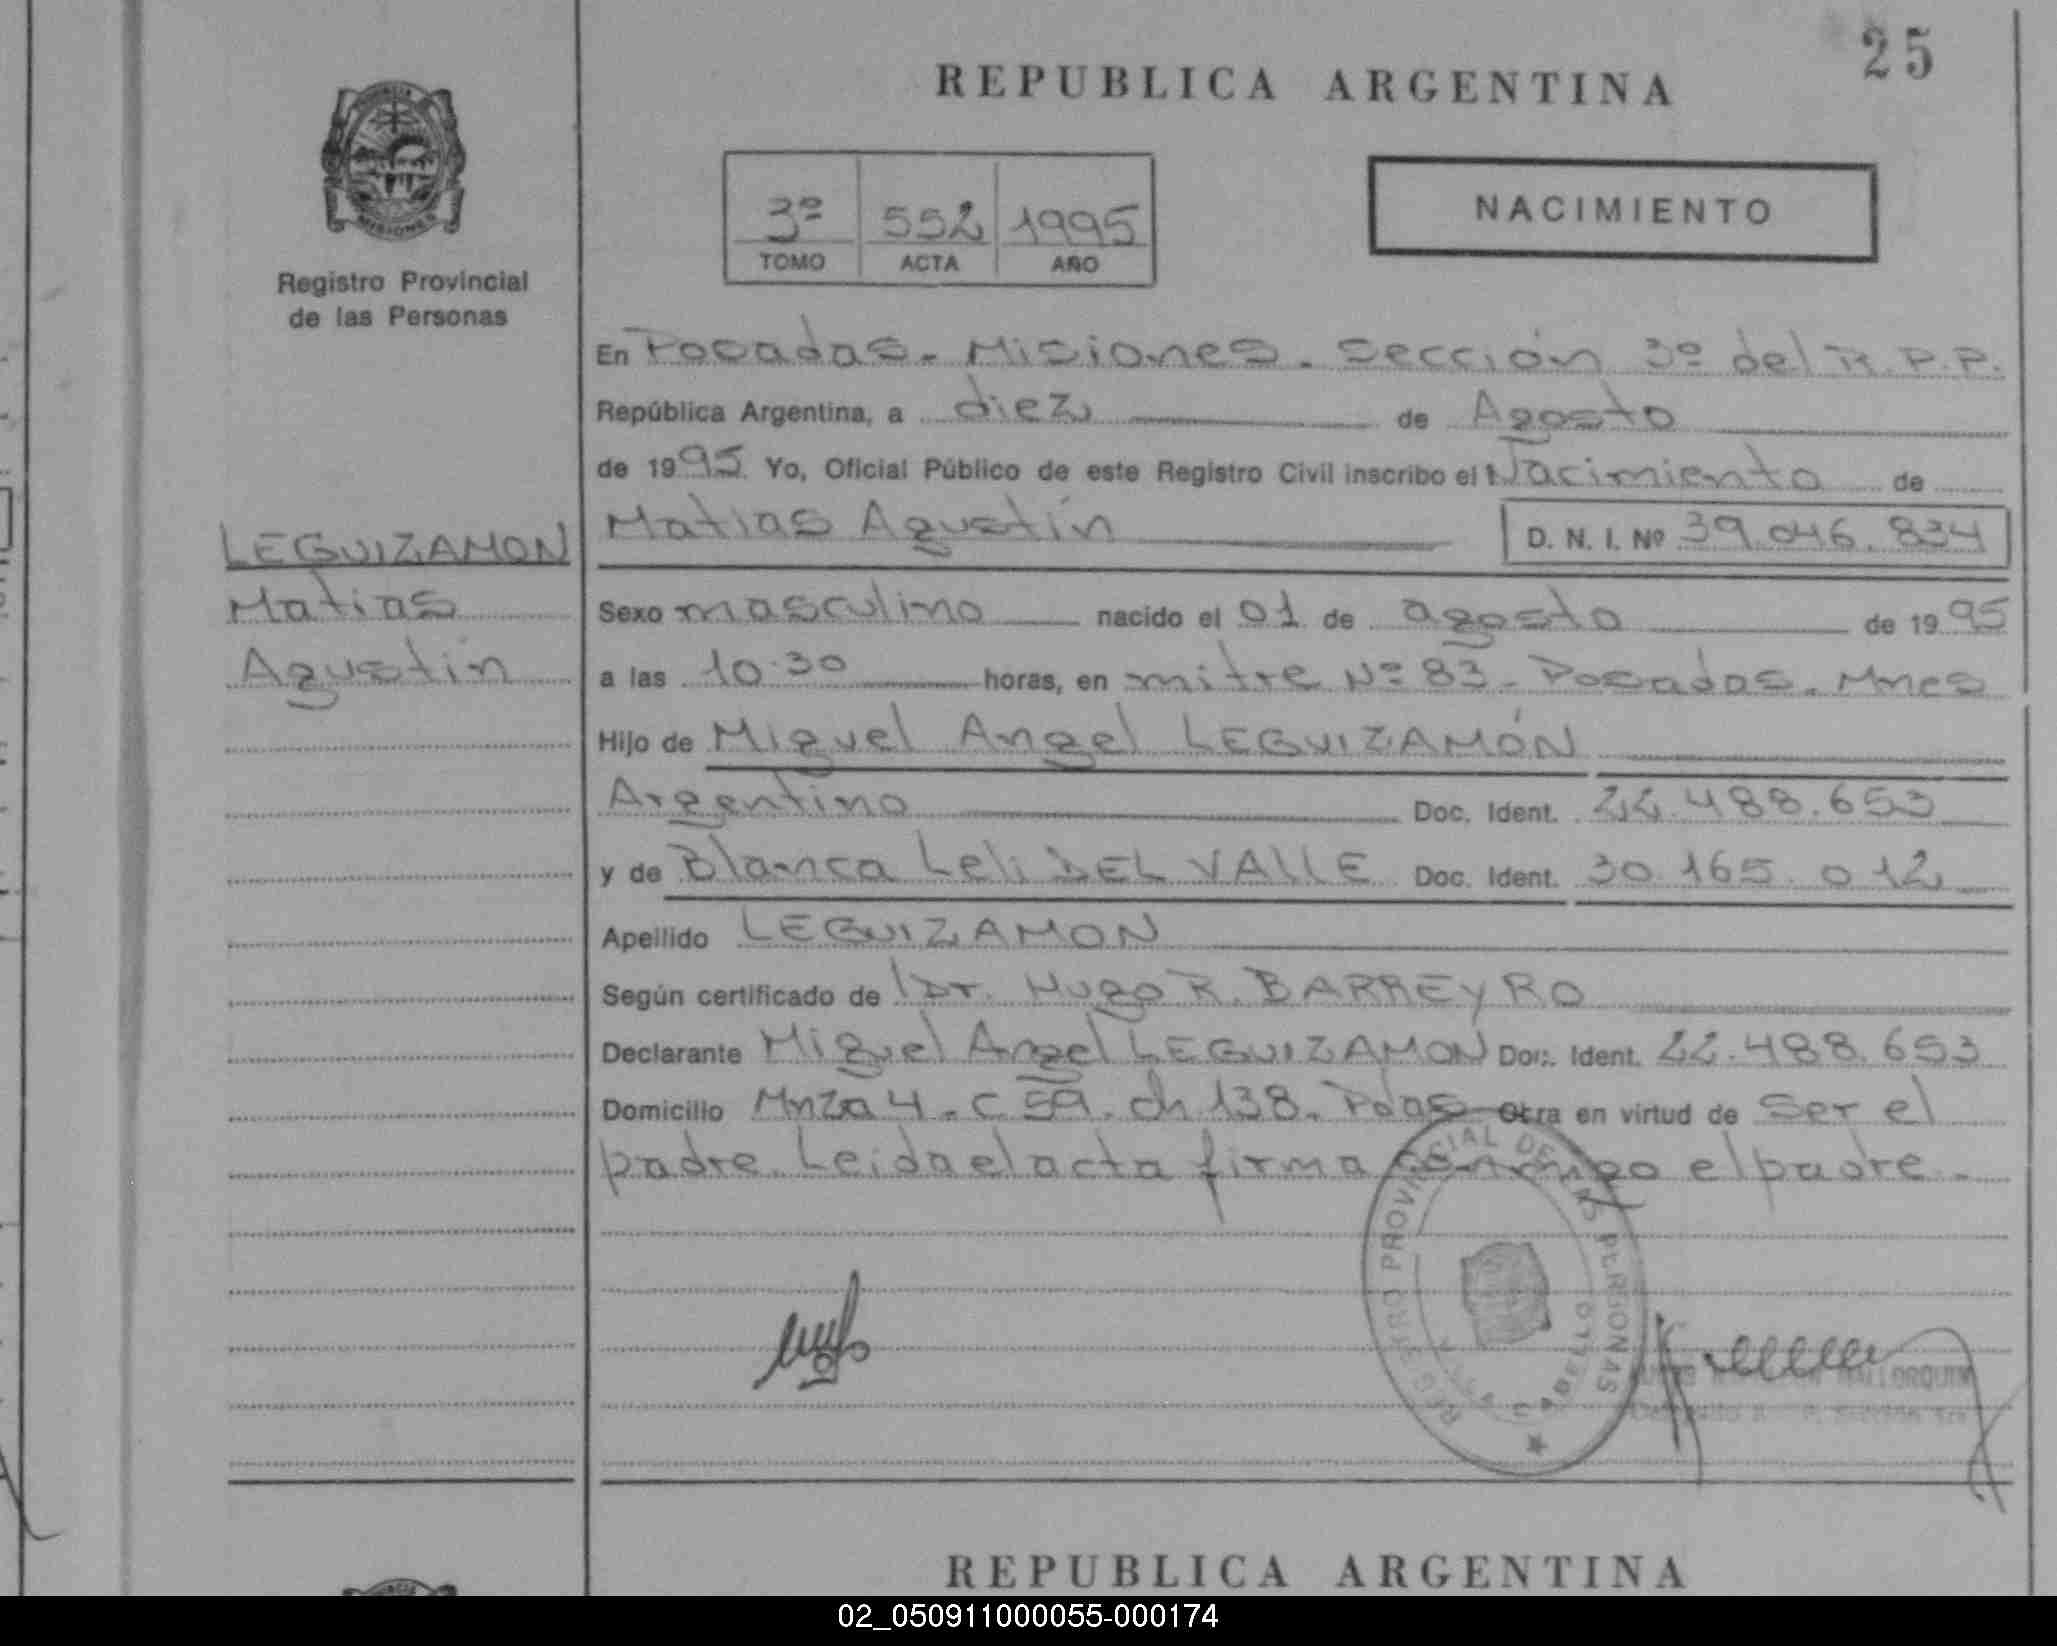 25
REPUBLICA ARGENTINA
PROVINCIA
MISIONES
Registro Provincial
de las Personas
3º 552 1995
TOMO ACTA AÑO
NACIMIENTO
En Posadas - Misiones - Sección 3º del R.P.P.
República Argentina, a diez de Agosto
de 1995 Yo, Oficial Público de este Registro Civil inscribo el Nacimiento de
Matias Agustín D. N. I. Nº 39.046.834
LEGUIZAMON
Matias
Agustín
Sexo masculino nacido el 01 de agosto de 1995
a las 10.30 horas, en mitre Nº 83 - Posadas - Mnes
Hijo de Miguel Angel LEGUIZAMÓN
Argentino Doc. Ident. 22.488.653
y de Blanca Leli DEL VALLE Doc. Ident. 30.165.012
Apellido LEGUIZAMON
Según certificado de Dr. Hugo R. BARREYRO
Declarante Miguel Angel LEGUIZAMON Doc. Ident. 22.488.653
Domicilio Mnza 4 - C 59 - ch 138 - Pdas Obra en virtud de ser el
padre. Leida el acta firma conmigo el padre -
REGISTRO PROVINCIAL DE LAS PERSONAS
MALLORQUIN
REPUBLICA ARGENTINA
02_050911000055-000174